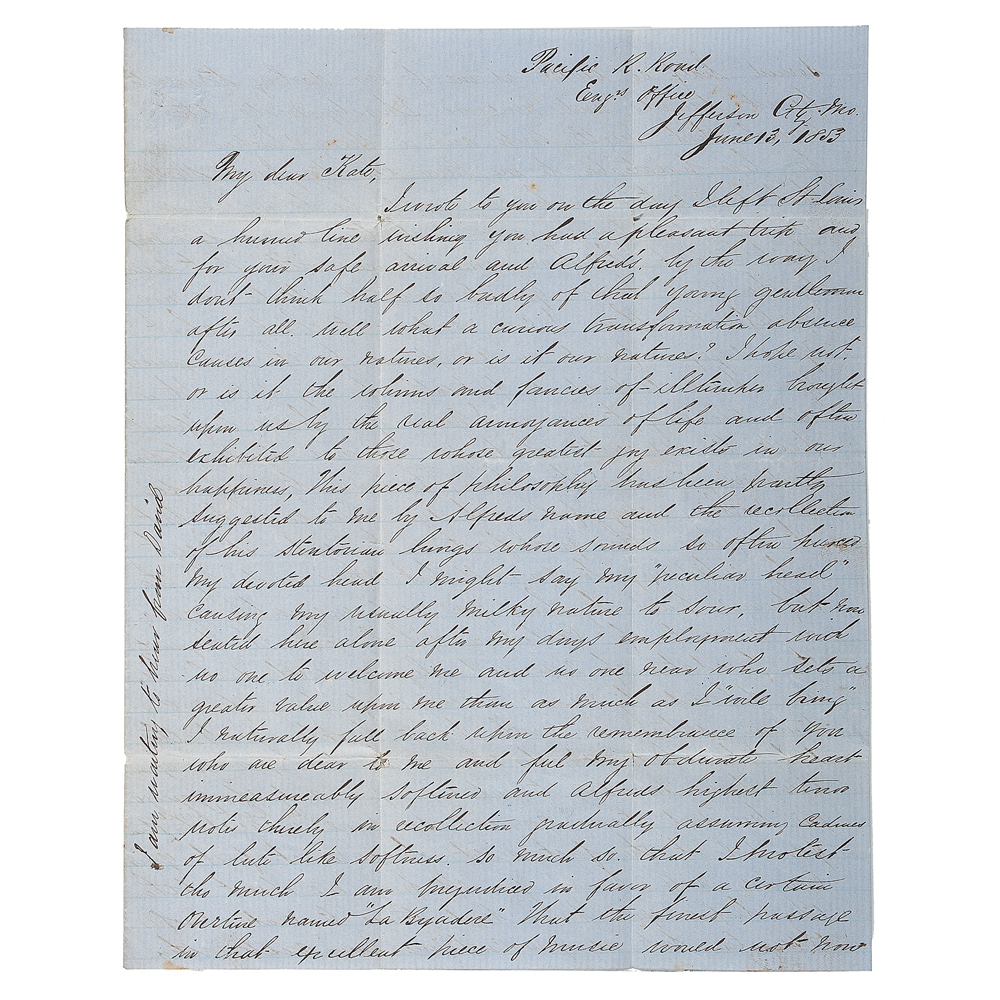 Pacific R. Road
Engrs Office
Jefferson City, Mo.
June 13, 1853
My dear Kate,
I wrote to you on the day I left St Louis
a hurried line wishing you had a pleasant trip and
for your safe arrival and Alfreds. by the way I
dont think half so badly of that young gentleman
after all. well what a curious transformation absence
causes in our natures, or is it our natures? I hope not.
or is it the whims and fancies of illtemper brought
upon us by the real annoyances of life and often
exhibited to those whose greatest joy exists in our
happiness, This piece of philosophy has been partly
suggested to me by Alfreds name and the recollection
of his stentorian lungs whose sounds so often pierced
my devoted head I might say my "peculiar head"
causing my usually milky nature to sour, but now
seated here alone after my days employment with
no one to welcome me and no one near who sets a
greater value upon me than as much as I "will bring"
I naturally fall back upon the remembrance of you
who are dear to me and feel my obdurate heart
immeasureably softened and Alfreds highest tenor
notes thereby in recollection gradually assuming
of lute like softness. so much so. that I protest
tho much I am prejudiced in favor of a certain
Overture named "La Byadere" that the finest passage
in that excellent piece of music would not now
I am waiting to hear from David